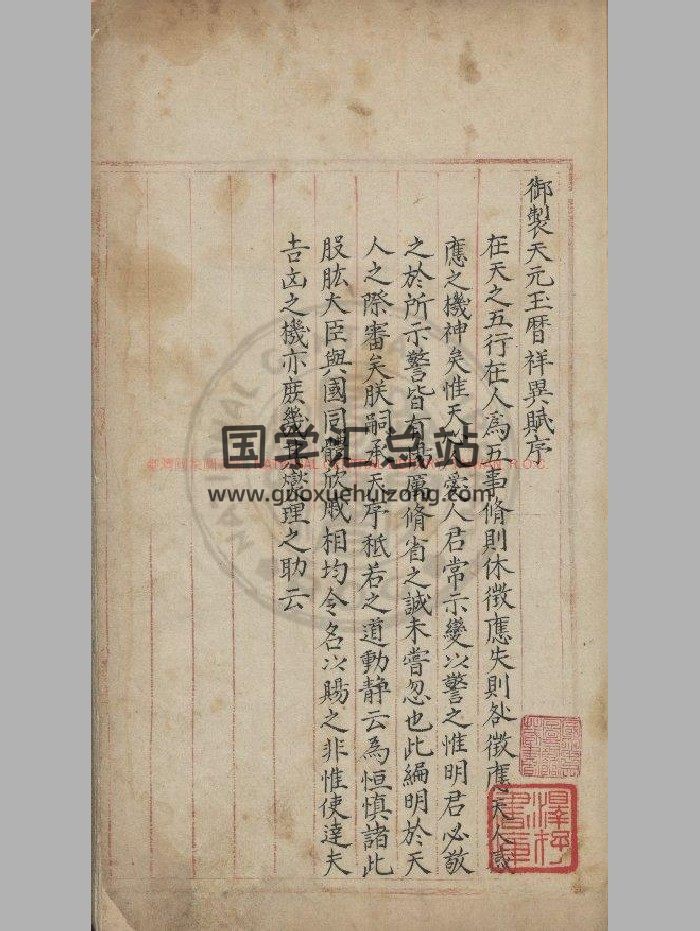 御製天元玉曆祥異賦序
在天之五行在人為五事脩則休徵應失則咎徵應天人感
應之機神矣惟天心愛人君常示變以警之惟明君必敬
之於所示警皆有惕厲脩省之誠未嘗忽也此編明於天
人之際審矣朕嗣承天序祗若之道動靜云為恒慎諸此
股肱大臣與國同體欣戚相均令名以賜之非惟使達夫
吉凶之機亦庶幾其燮理之助云
国学汇总站
www.guoxuehuizong.com